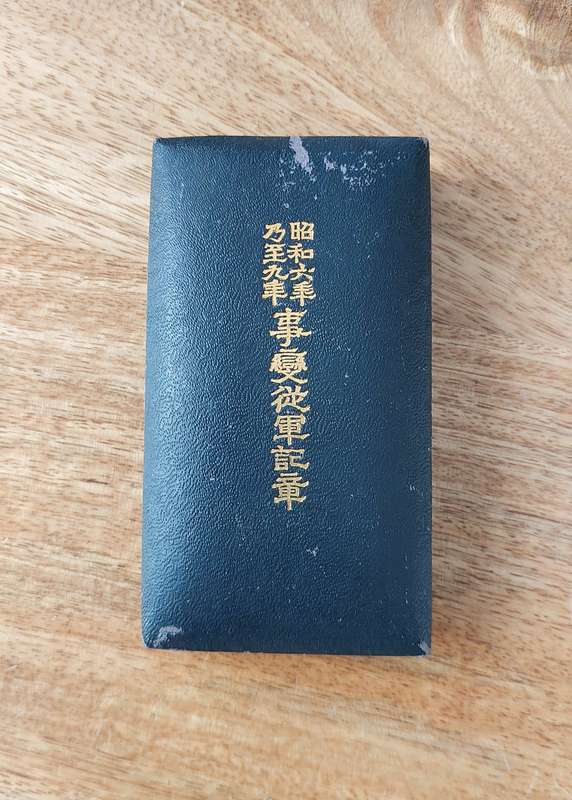 昭和六年
乃至九年
事變従軍記章